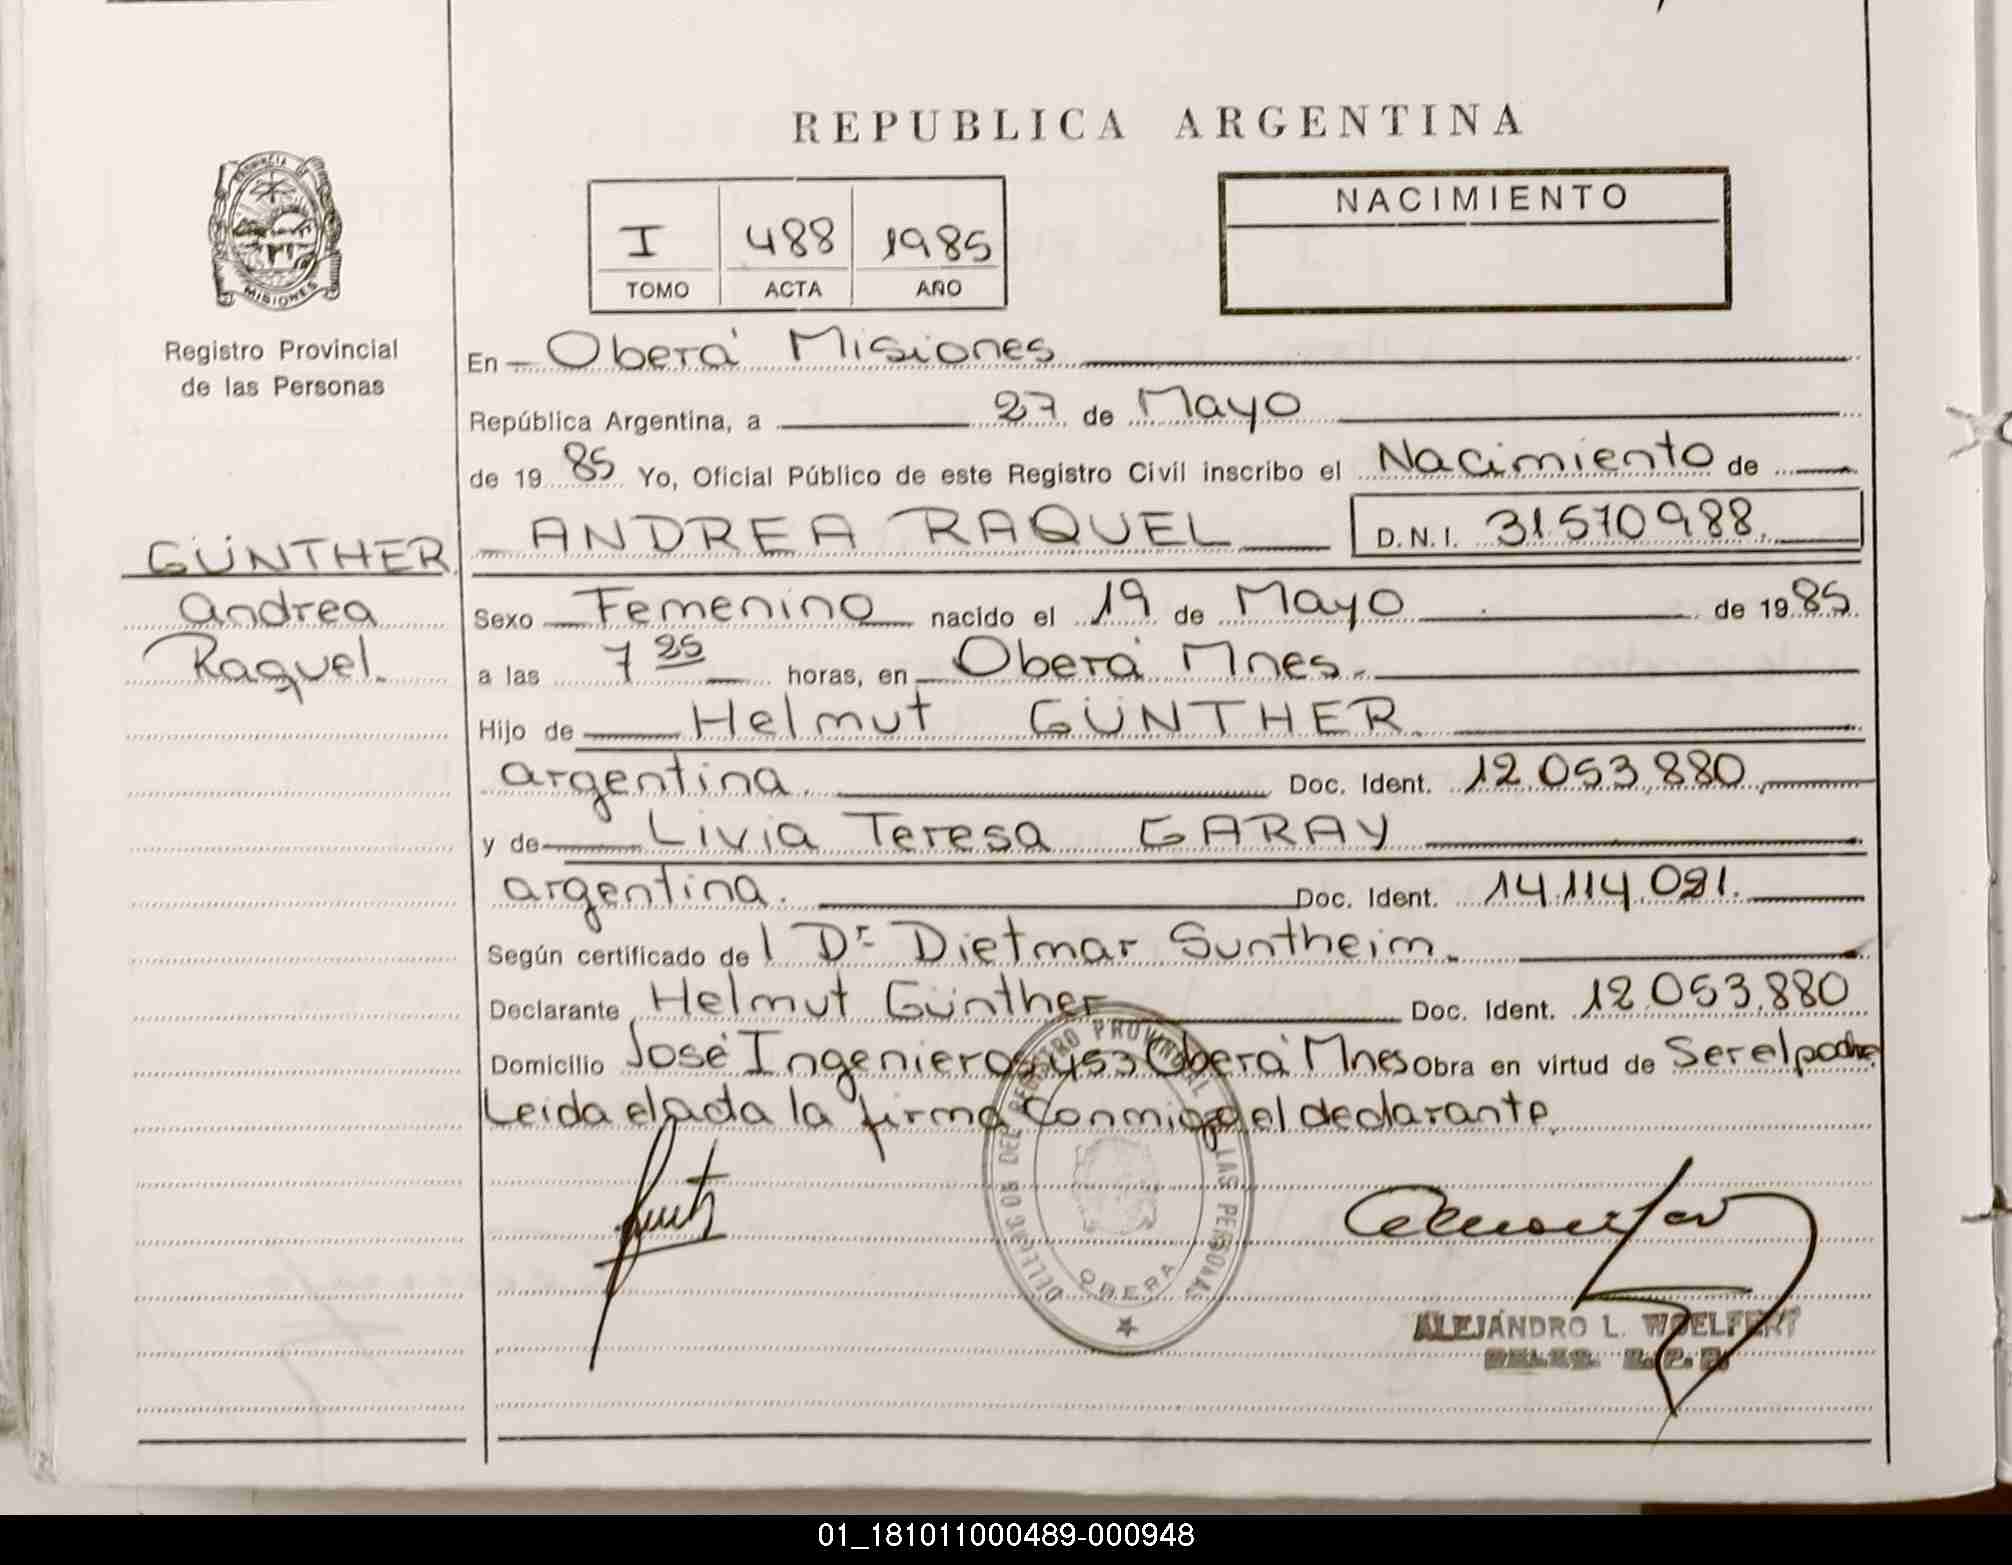 REPUBLICA ARGENTINA
PROVINCIA
MISIONES
Registro Provincial
de las Personas
I 488 1985
TOMO ACTA AÑO
NACIMIENTO
En Oberá Misiones
República Argentina, a 27 de Mayo
de 19 85 Yo, Oficial Público de este Registro Civil inscribo el Nacimiento de
GÜNTHER
Andrea
Raquel.
ANDREA RAQUEL D.N.I. 31.570.988.
Sexo Femenino nacido el 19 de Mayo de 19 85.
a las 7 25 horas, en Oberá Mnes.
Hijo de Helmut GÜNTHER.
argentina. Doc. Ident. 12.053.880.
y de Livia Teresa GARAY
argentina. Doc. Ident. 14.114.021.
Según certificado de l Dr Dietmar Suntheim.
Declarante Helmut Günther Doc. Ident. 12.053.880
Domicilio José Ingenieros 453 Oberá Mnes Obra en virtud de Ser el padre
Leida el acta la firma conmigo el declarante.
REGISTRO PROVINCIAL LAS PERSONAS
OBERA
ALEJANDRO L. WOELFERT
01_181011000489-000948